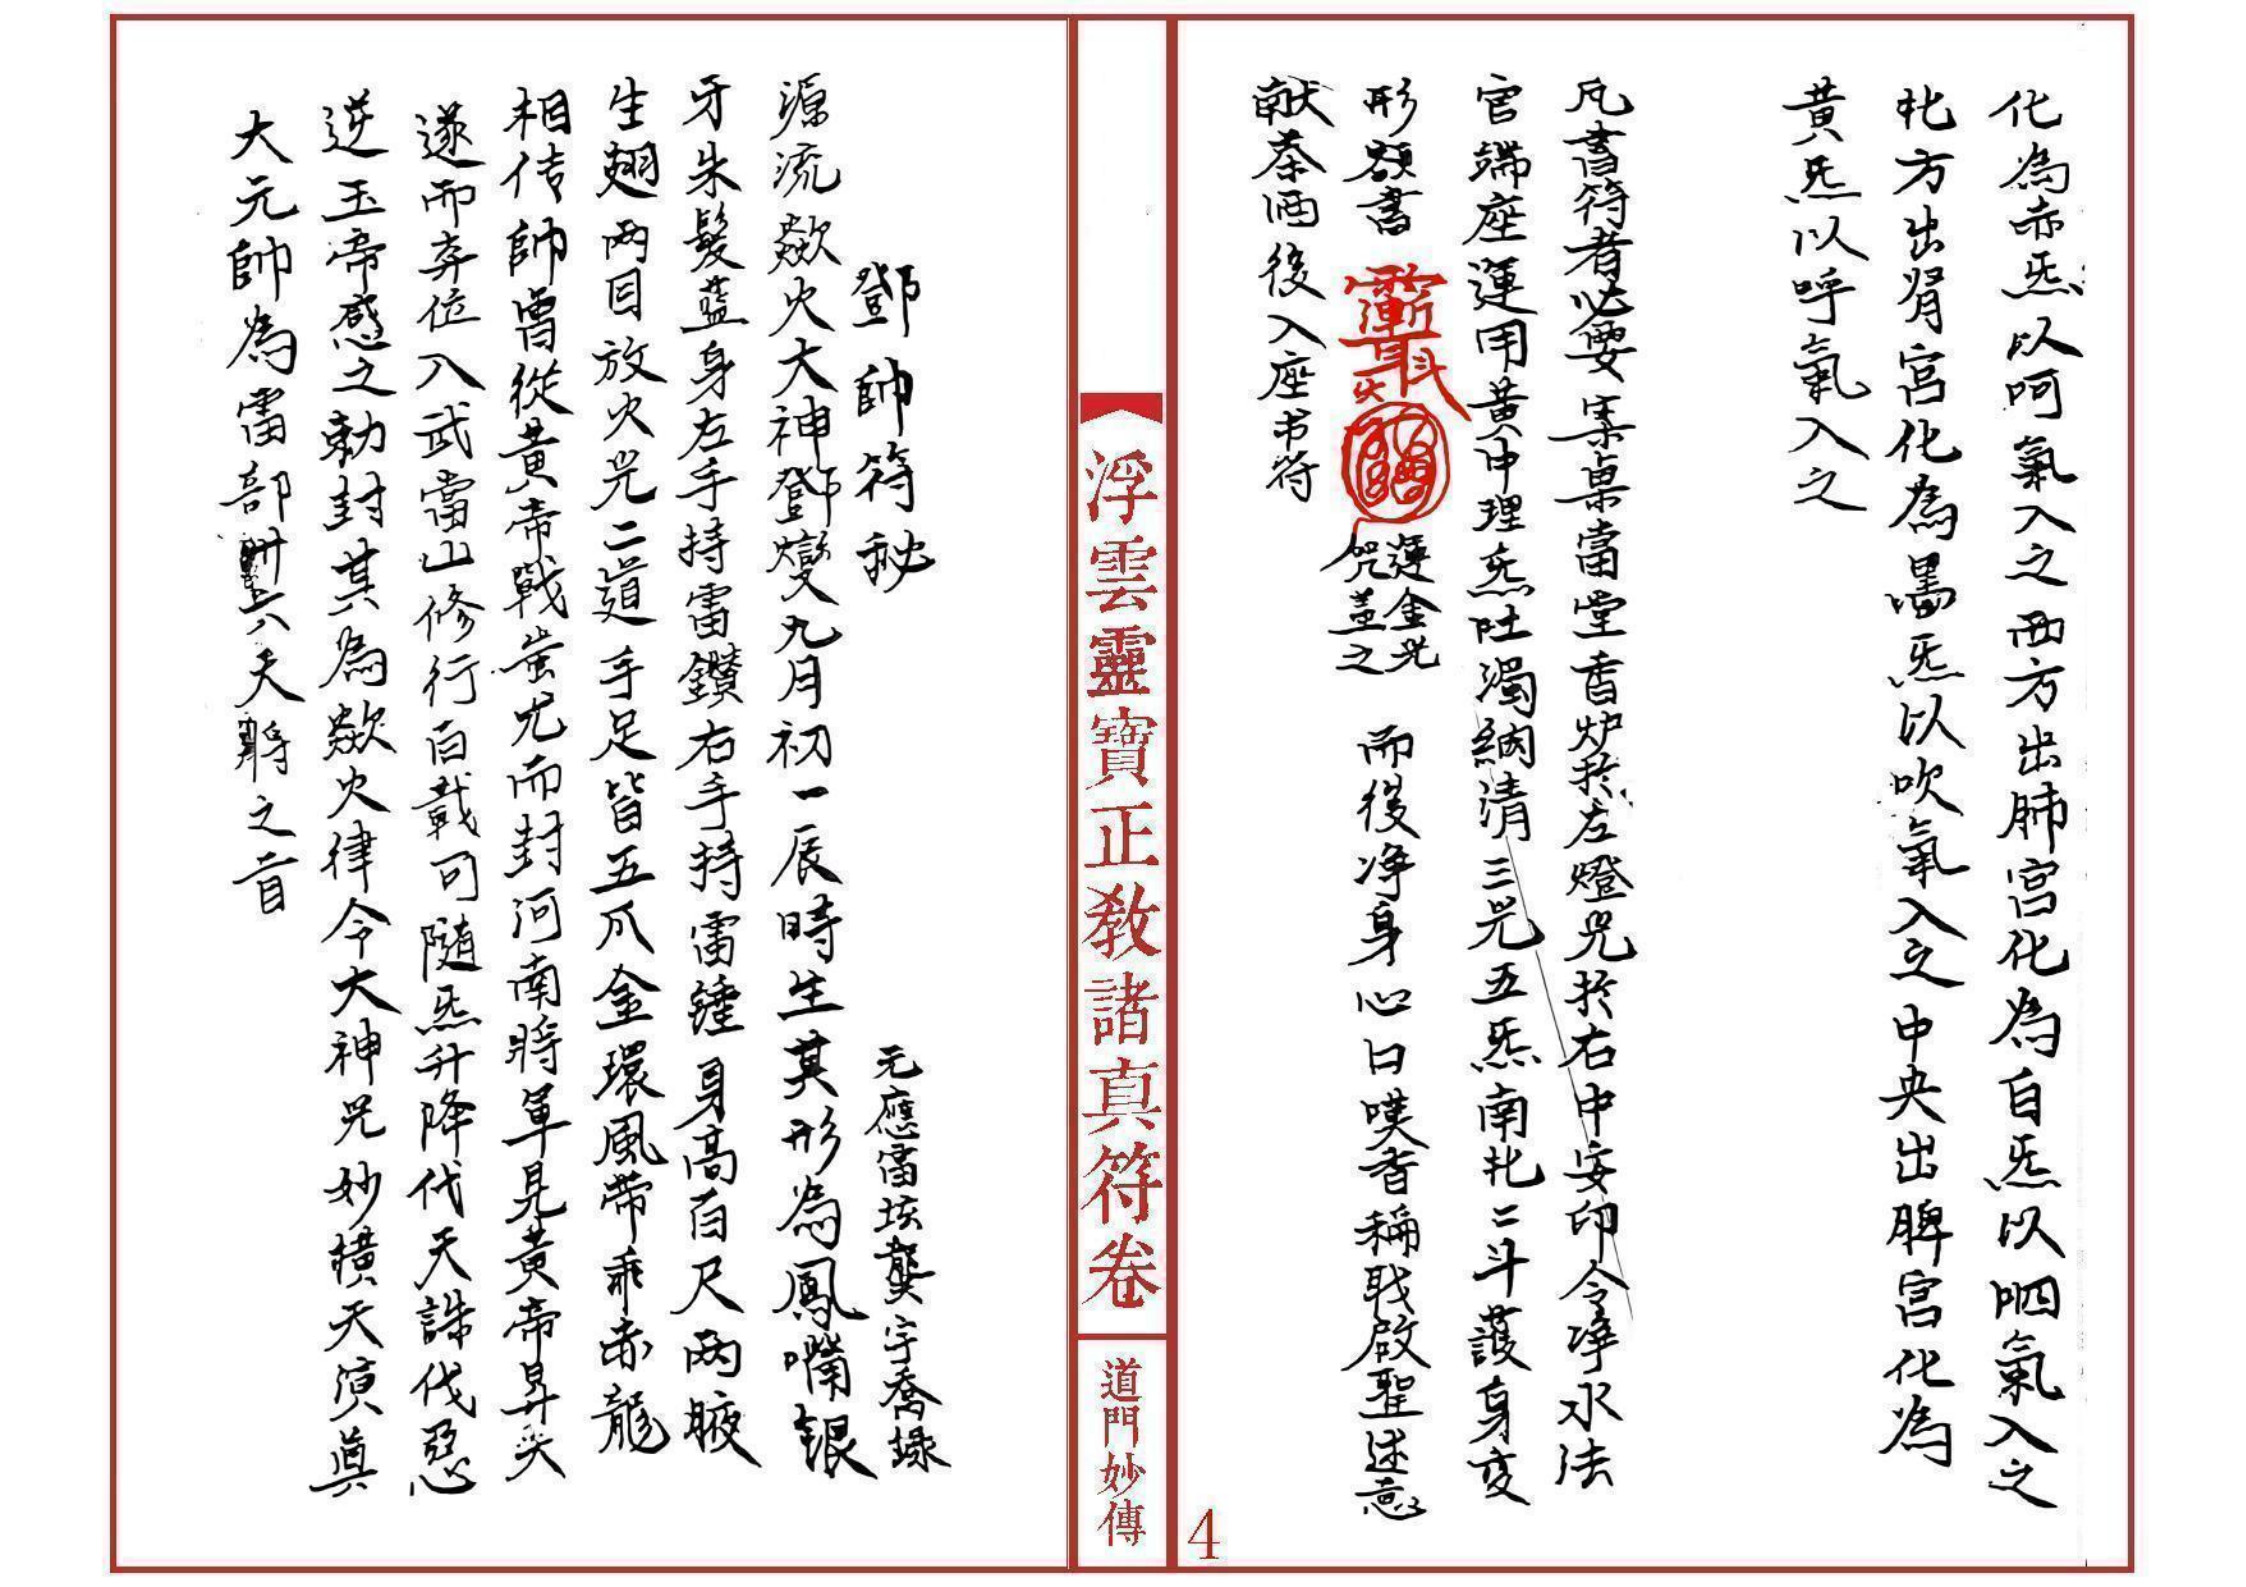 化為赤炁以呵氣入之西方出肺宮化為自炁以呬氣入之
北方出肾宮化為黑炁以吹氣入之中央出脾宮化為
黄炁以呼氣入之
凡書符者必要案桌當堂香炉於左燈光於右中安印令净水法
官端座運用黄中理炁吐濁納清三光五炁南北二斗護身变
形額書
運金光
咒盖之
而後净身心口嘆香稱職啟聖述意
献茶洒後入座书符
4
浮雲靈寶正教諸真符卷
道門妙傳
鄧帥符秘
元應雷垓龔宇喬録
源流歘火大神鄧燮九月初一辰時生其形為鳳嘴银
牙朱髮蓝身左手持雷鑚右手持雷錘身高百尺两腋
生翅两目放火光二道手足皆五爪金環風带乖赤龍
相传帥曾從黄帝戰蚩尤而封河南將軍見黄帝昇天
遂而弃位入武當山修行自戡司随炁升降代天誅伐惡
逆玉帝感之勅封其為歘火律令大神咒妙横天演眞
大元帥為雷部卅六天將之首